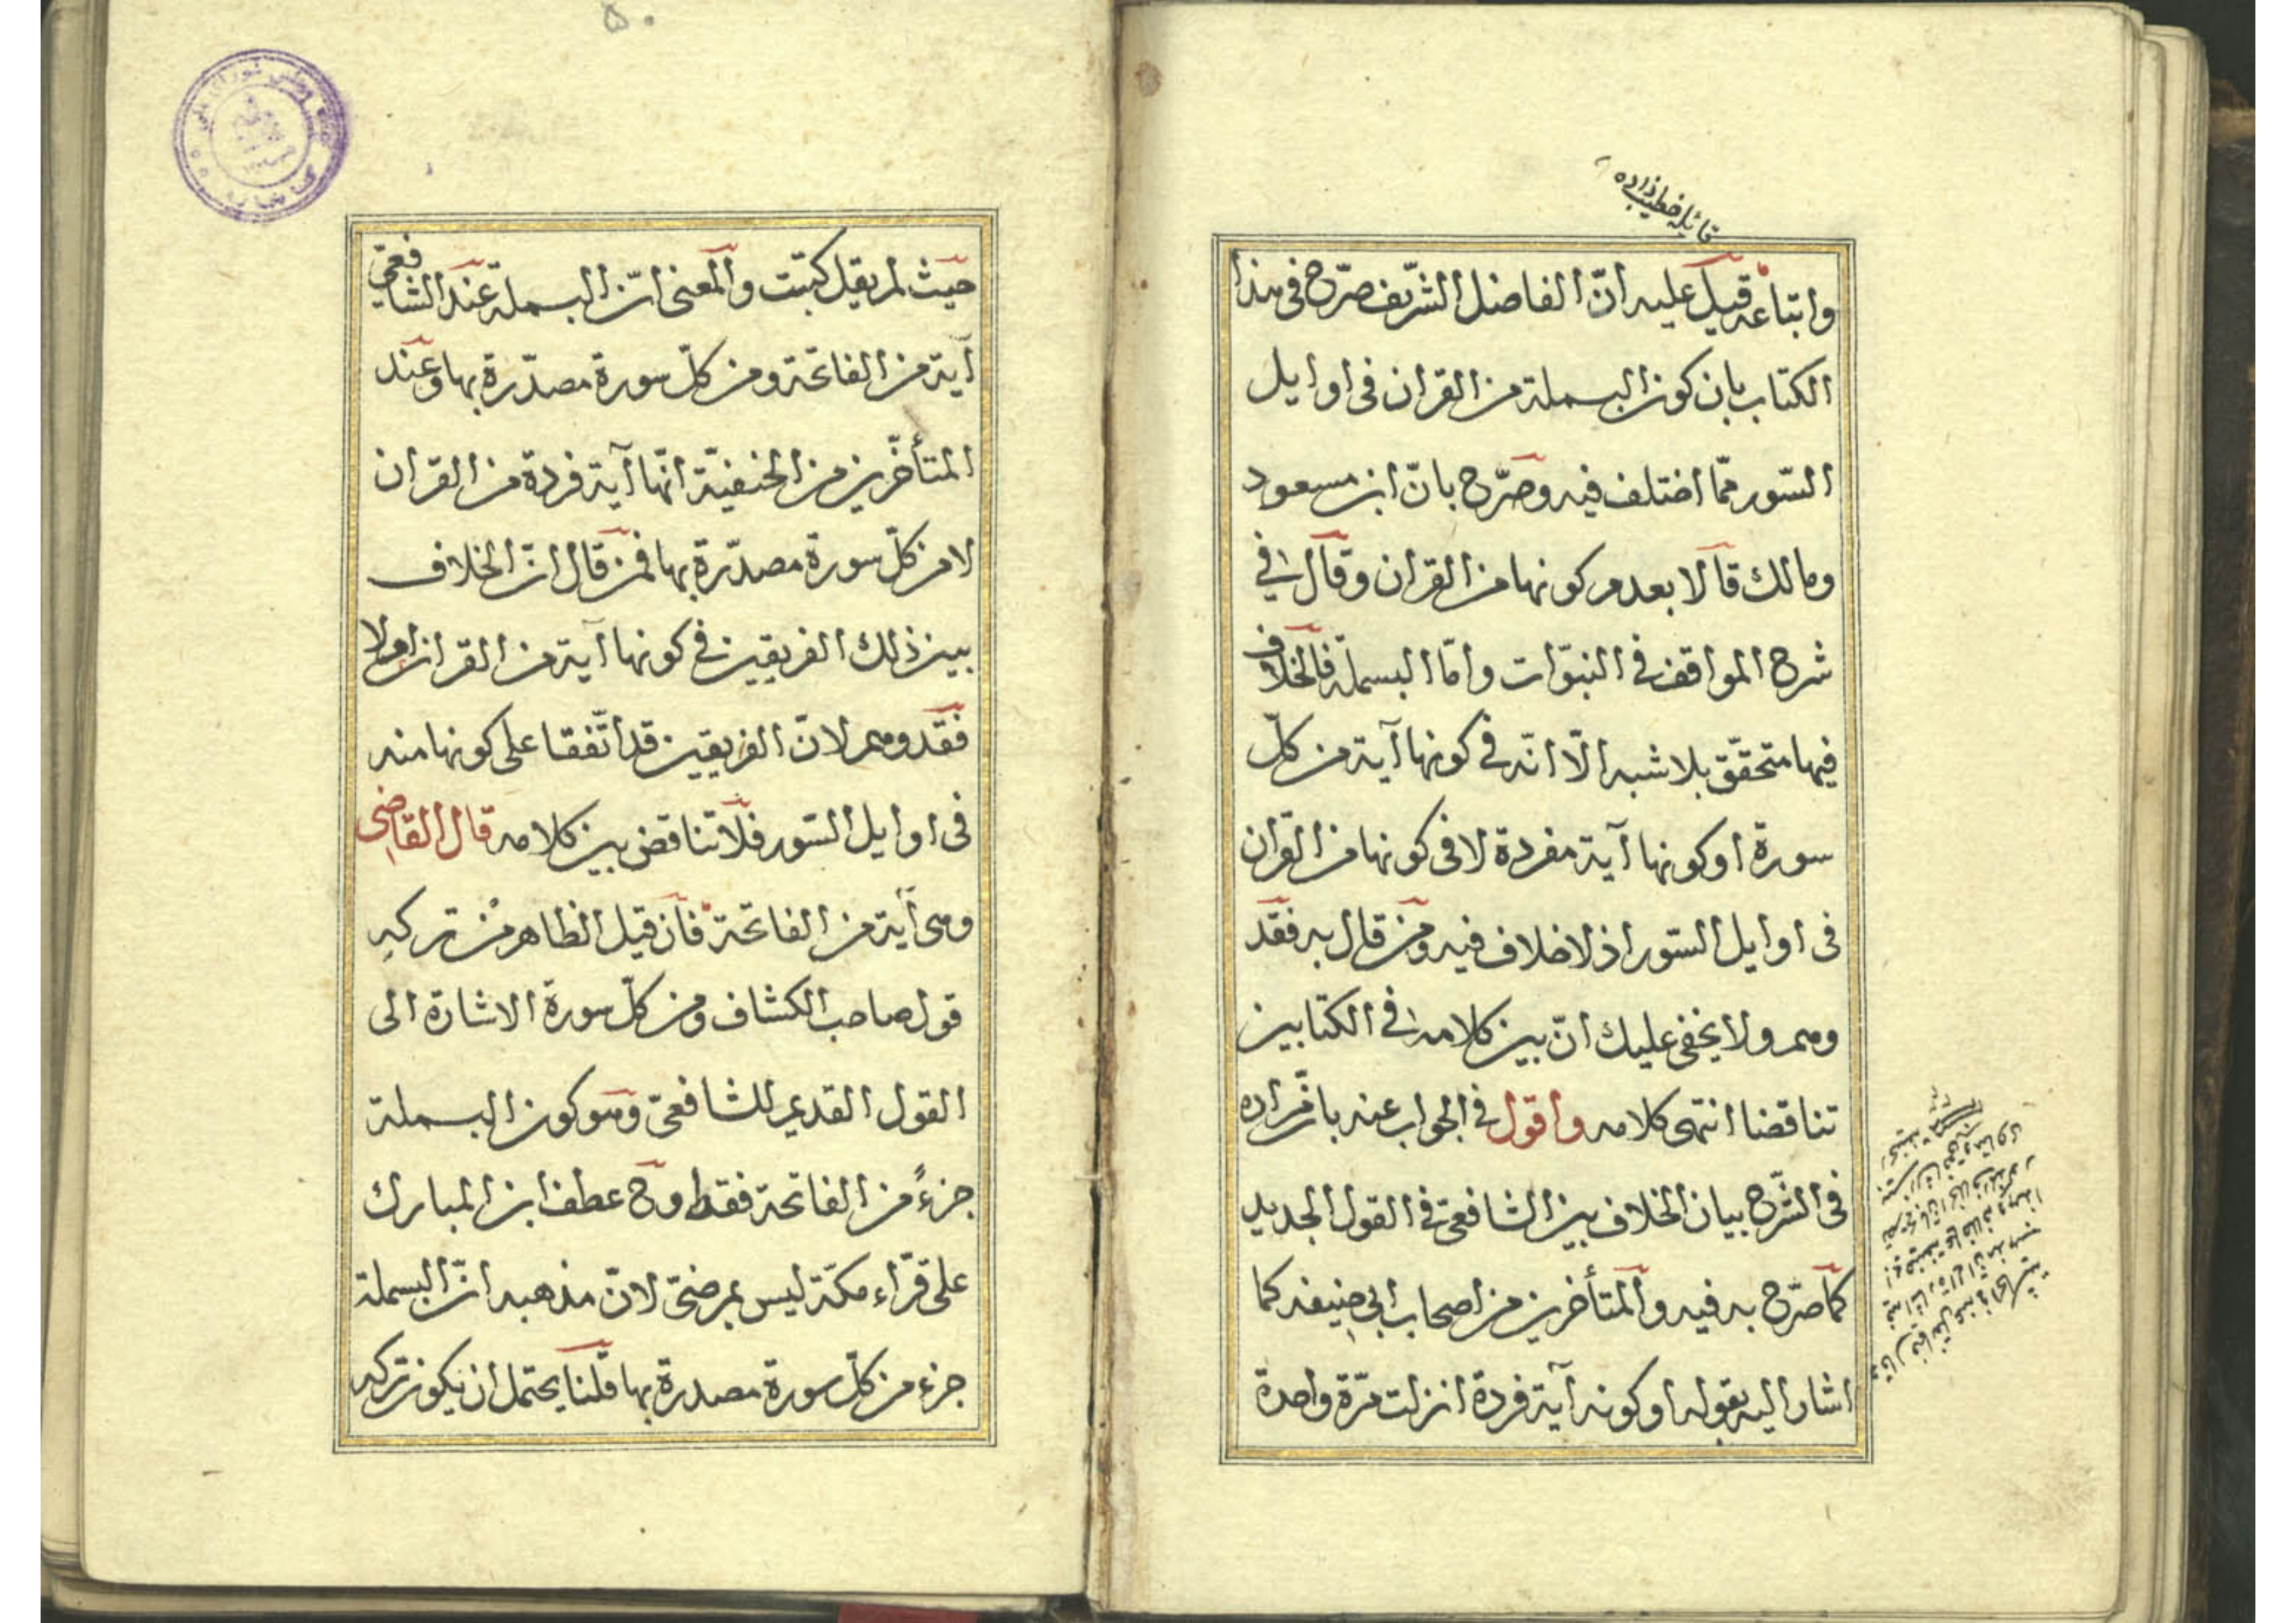 قائله خطيب زاده
واتباعه قيل عليه انّ الفاضل الشّريف صرّح فى هذا
الكتاب بان كون البسملة من القران فى اوايل
السّور ممّا اختلف فيه وصرّح بانّ ابن مسعود
ومالك قالا بعدم كونها من القران وقال فى
شرح المواقف فى النبوّات وامّا البسملة فالخلاف
فيها متحقّق بلا شبهة الّا انّه فى كونها آية من كلّ
سورة او كونها آية مفردة لا فى كونها من القران
فى اوايل السّور اذ لا خلاف فيه ومن قال به فقد
وهم ولا يخفى عليك انّ بين كلامه فى الكتابين
تناقضا انتهى كلامه واقول فى الجواب عنه بانّ مراده
فى الشّرح بيان الخلاف بين الشافعىّ فى القول الجديد
كما صرّح به فيه والمتأخرين من اصحاب ابى حنيفه كما
اشار اليه بقوله او كونه آية فردة انزلت مرّة واحدة
۵۰
حيث لم يقل كتبت والمعنى انّ البسملة عند الشافعىّ
آية من الفاتحة ومن كلّ سورة مصدّرة بها وعند
المتأخّرين من الحنفيّة انّها آية فردة من القران
لا من كلّ سورة مصدّرة بها فمن قال انّ الخلاف
بين ذلك الفريقين فى كونها آية من القران اولا
فقد وهم لانّ الفريقين قد اتّفقا على كونها منه
فى اوايل السّور فلا تناقض بين كلامه قال القاضى
وهى آية من الفاتحة فان قيل الظاهر من تركه
قول صاحب الكشاف ومن كلّ سورة الاشارة الى
القول القديم للشافعىّ وهو كون البسملة
جزءً من الفاتحة فقط وح عطف ابن المبارك
على قرّاء مكّة ليس بمرضىّ لانّ مذهبه انّ البسملة
جزء من كلّ سورة مصدرة بها قلنا يحتمل ان يكون تركه